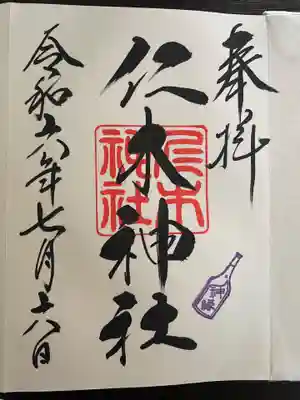 奉拝
仁木神社
仁木神社
令和六年七月十八日